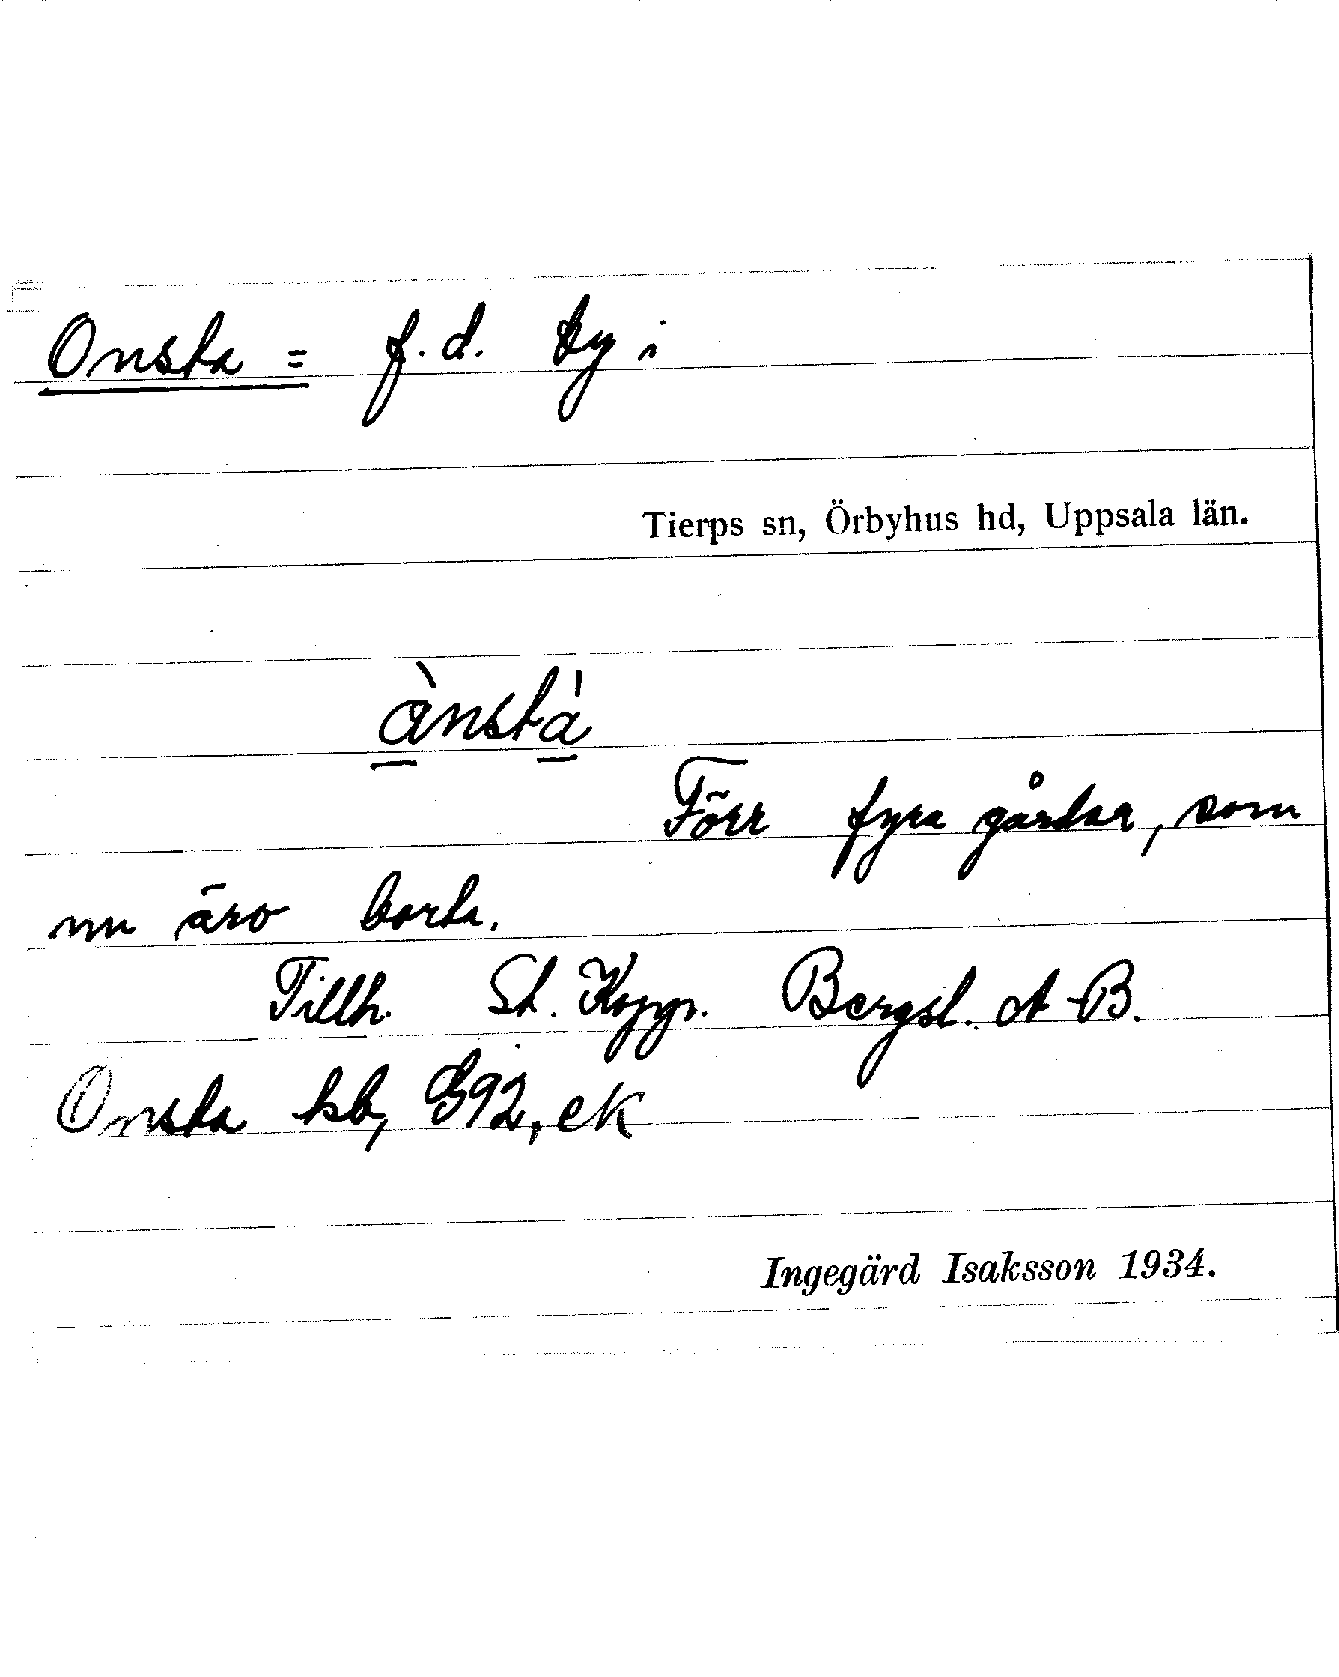 Onsta = f. d. by i
Tierps sn, Örbyhus hd, Uppsala län.
ànstà
Förr fyra gårdar, som
nu äro borta.
Tillh. St. Koppr. Bergsl. A-B.
Onsta hb, 892, ek
Ingegärd Isaksson 1934.